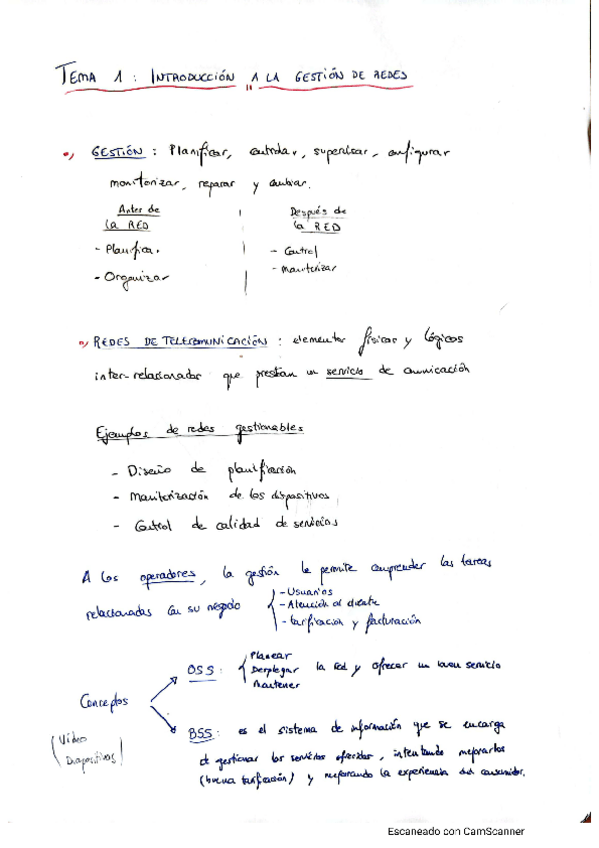 TEMA 1: INTRODUCCIÓN A LA GESTIÓN DE REDES
•) GESTIÓN: Planificar, controlar, supervisar, configurar
monitorizar, reparar y cambiar.
Antes de la RED
- Planificar.
- Organizar
Después de la RED
- Control
- Monitorizar
•) REDES DE TELECOMUNICACIÓN: elementos físicos y lógicos
inter-relacionados que prestan un servicio de comunicación
Ejemplos de redes gestionables
- Diseño de planificación
- Monitorización de los dispositivos
- Control de calidad de servicios
A los operadores, la gestión le permite comprender las tareas
relacionadas con su negocio
- Usuarios
- Atención al cliente
- tarificación y facturación
Conceptos
(Vídeo
Diapositivas)
OSS:
Planear
Desplegar
Mantener
la red y ofrecer un buen servicio
BSS: es el sistema de información que se encarga
de gestionar los servicios ofrecidos, intentando mejorarlos
(buena tarificación) y mejorando la experiencia del consumidor.
Escaneado con CamScanner